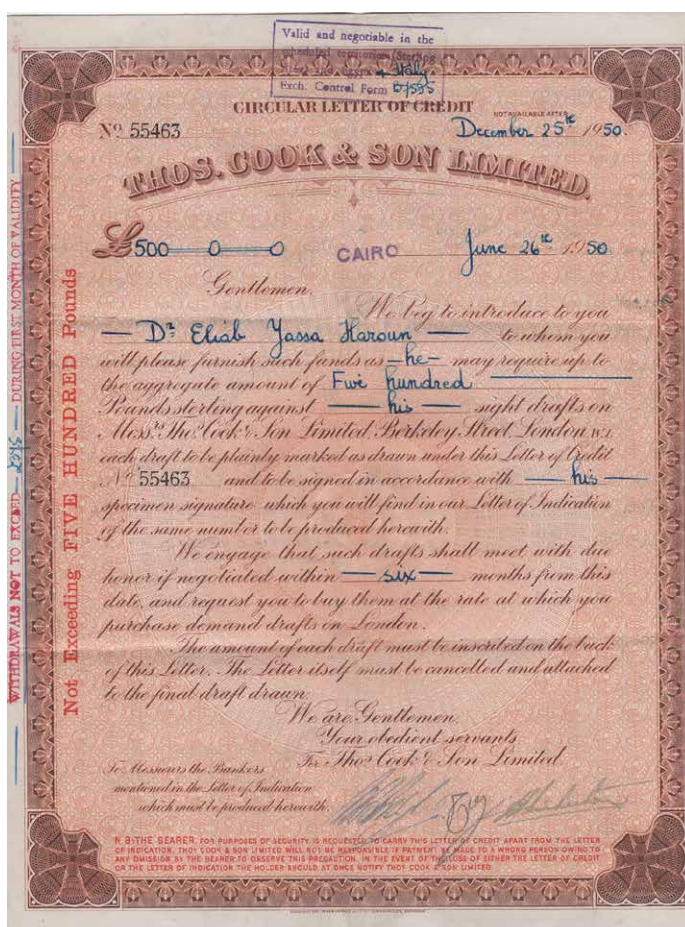 Valid and negotiable in the
scheduled territories (Sterling
Egypt + Italy
Exch. Control Form
CIRCULAR LETTER OF CREDIT
NOT AVAILABLE AFTER
Nº 55463 December 25th 1950.
THOS. COOK & SON LIMITED.
£500—0—0 CAIRO June 26th 1950
Gentlemen,
We beg to introduce to you
— Dr Eliab Yassa Haroun — to whom you
will please furnish such funds as —he— may require up to
the aggregate amount of Five hundred
Pounds sterling against — his — sight drafts on
Messrs Thos Cook & Son Limited, Berkeley Street London W.1.
each draft to be plainly marked as drawn under this Letter of Credit
Nº 55463 and to be signed in accordance with — his —
specimen signature which you will find in our Letter of Indication
of the same number to be produced herewith.
We engage that such drafts shall meet with due
honor if negotiated within — six — months from this
date, and request you to buy them at the rate at which you
purchase demand drafts on London.
The amount of each draft must be inscribed on the back
of this Letter. The Letter itself must be cancelled and attached
to the final draft drawn.
We are, Gentlemen,
Your obedient servants
For Thos Cook & Son Limited
To Messieurs the Bankers
mentioned in the Letter of Indication
which must be produced herewith.
N.B: THE BEARER, FOR PURPOSES OF SECURITY, IS REQUESTED TO CARRY THIS LETTER OF CREDIT APART FROM THE LETTER
OF INDICATION. THOS COOK & SON LIMITED WILL NOT BE RESPONSIBLE IF PAYMENT BE MADE TO A WRONG PERSON OWING TO
ANY OMISSION BY THE BEARER TO OBSERVE THIS PRECAUTION. IN THE EVENT OF THE LOSS OF EITHER THE LETTER OF CREDIT
OR THE LETTER OF INDICATION THE HOLDER SHOULD AT ONCE NOTIFY THOS COOK & SON LIMITED
Not Exceeding FIVE HUNDRED Pounds
WITHDRAWALS NOT TO EXCEED — — DURING FIRST MONTH OF VALIDITY —